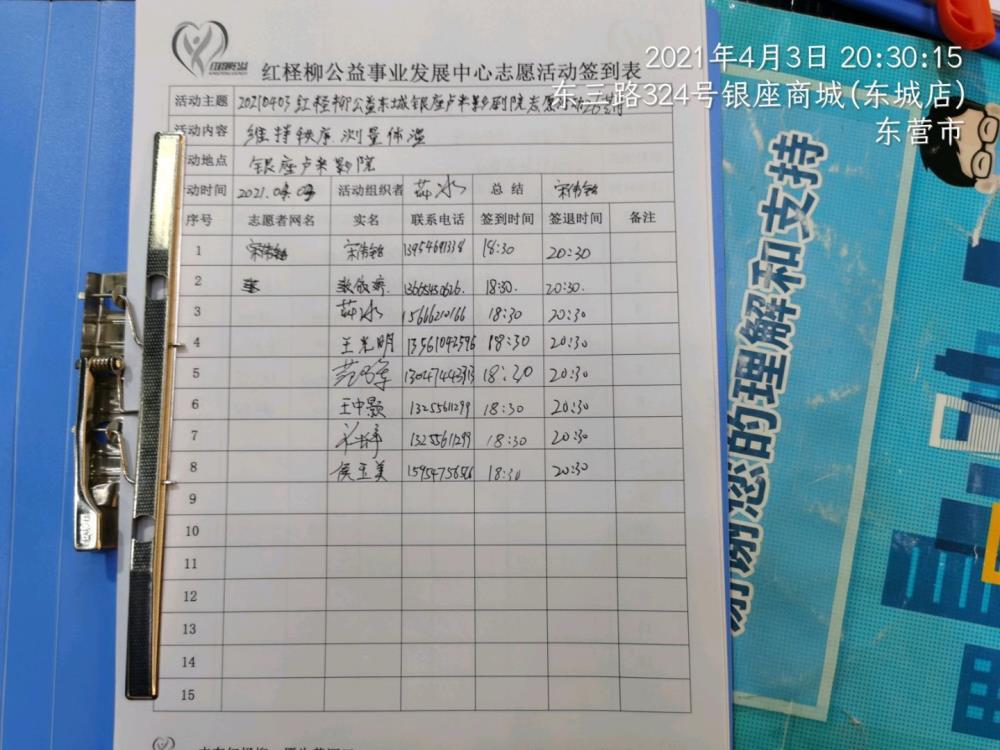 2021年4月3日 20:30:15
东三路324号银座商城(东城店)
东营市
红柽柳公益事业发展中心志愿活动签到表
活动主题 20210403红柽柳公益东城银座卢米影剧院志愿
活动内容 维持秩序.测量体温
动地点 银座卢米影院
动时间 2021.04.03 活动组织者 茹冰 总结 宋伟铭
序号 志愿者网名 实名 联系电话 签到时间 签退时间 备注
1 宋伟铭 18:30 20:30
2 18:30. 20:30.
3 茹冰 15666210166 18:30 20:30
4 王光明 13561042596 18:30 20:30
5 18:30 20:30
6 王中颢 13255611299 18:30 20:30
7 13255611299 18:30 20:30
8 侯玉美 18:30 20:30
9
10
11
12
13
14
15
谢您的理解和支持